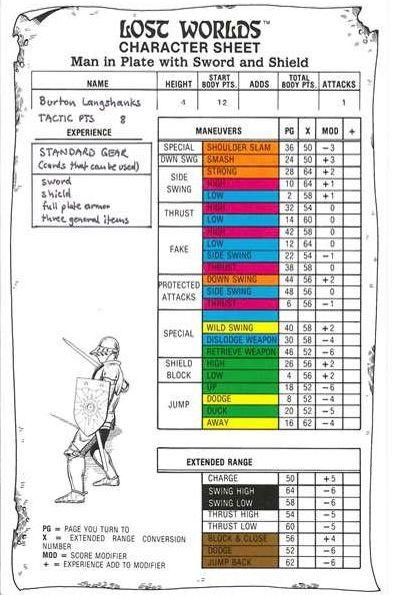 LOST WORLDS™
CHARACTER SHEET
Man in Plate with Sword and Shield
NAME HEIGHT START BODY PTS. ADDS TOTAL BODY PTS. ATTACKS
Burton Langshanks 4 12 1
TACTIC PTS 8
EXPERIENCE
STANDARD GEAR
(cards that can be used)
sword
shield
full plate armor
three general items
MANEUVERS PG X MOD +
SPECIAL SHOULDER SLAM 36 50 -3
DWN SWG SMASH 24 50 +3
SIDE SWING STRONG 28 64 +2
HIGH 10 64 +1
LOW 2 58 +1
THRUST HIGH 32 54 0
LOW 14 60 0
FAKE HIGH 42 58
LOW 12 64 0
SIDE SWING 22 54 -1
THRUST 38 58 0
PROTECTED ATTACKS DOWN SWING 44 56 +2
SIDE SWING 48 56 0
THRUST 6 56 -1
SPECIAL WILD SWING 40 58 +2
DISLODGE WEAPON 30 58 -4
RETRIEVE WEAPON 46 52 -6
SHIELD BLOCK HIGH 26 56 +2
LOW 4 56 +2
JUMP UP 18 52 -6
DODGE 8 52 -4
DUCK 20 52 -5
AWAY 16 62 -4
EXTENDED RANGE
CHARGE 50 +5
SWING HIGH 64 -6
SWING LOW 58 -6
THRUST HIGH 54 -5
THRUST LOW 60 -5
BLOCK & CLOSE 56 +4
DODGE 52 -6
JUMP BACK 62 -6
PG = PAGE YOU TURN TO
X = EXTENDED RANGE CONVERSION
NUMBER
MOD = SCORE MODIFIER
+ = EXPERIENCE ADD TO MODIFIER